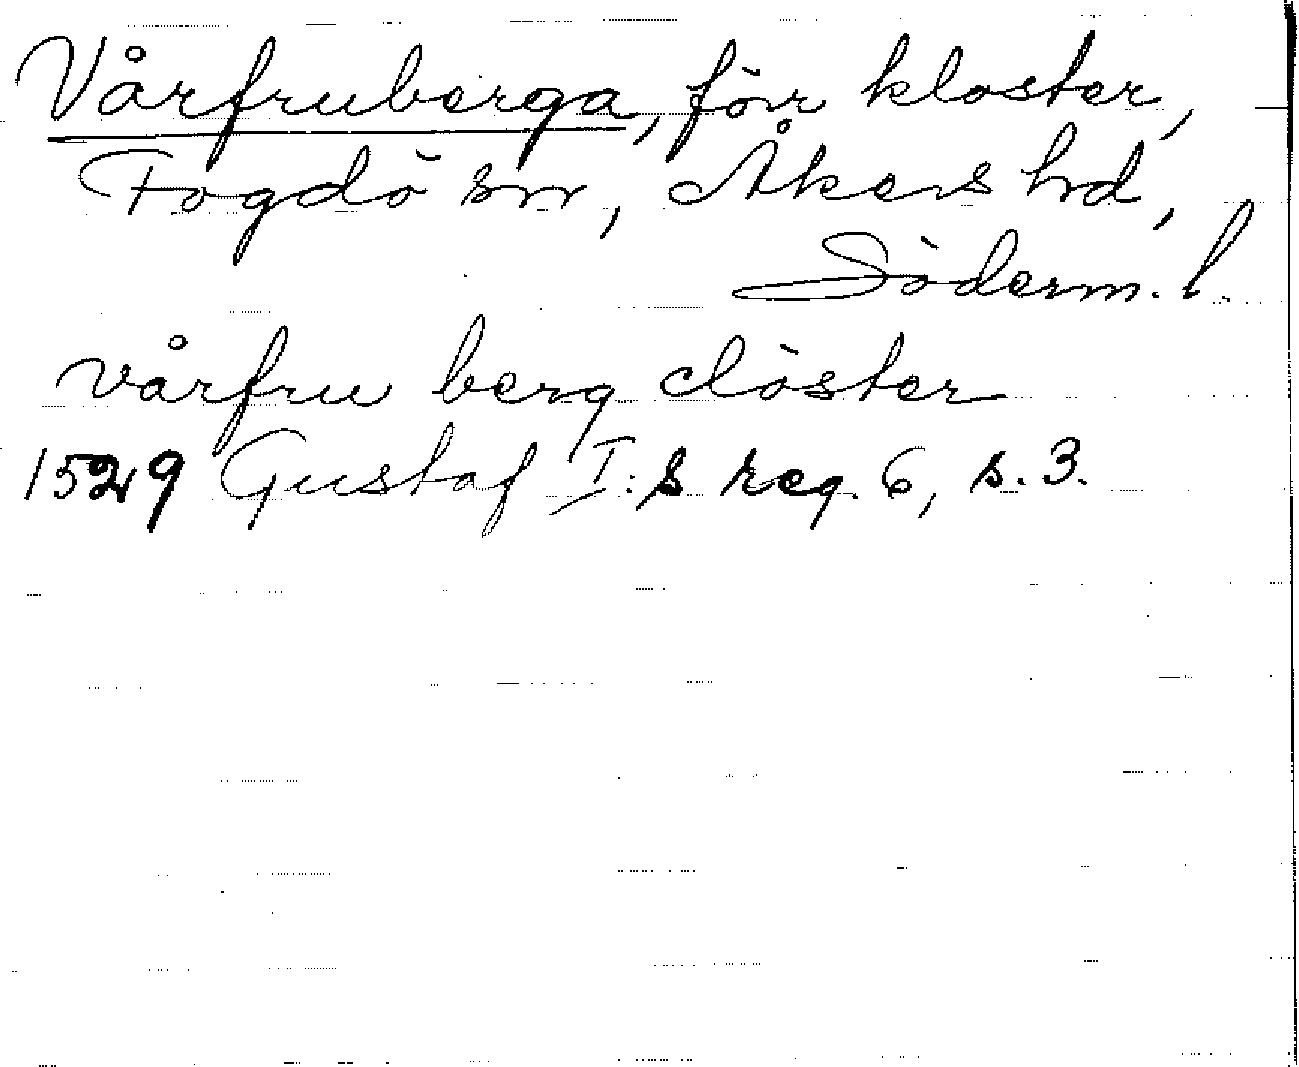 Vårfruberga, förr kloster,
Fogdö sn, Åkers hd,
Söderm. l.
vårfru berg clöster
1529 Gustaf I:s reg. 6, s. 3.